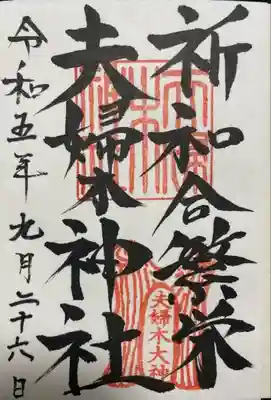 祈和合繁栄
夫婦木神社
令和五年九月二十六日
夫婦木大神